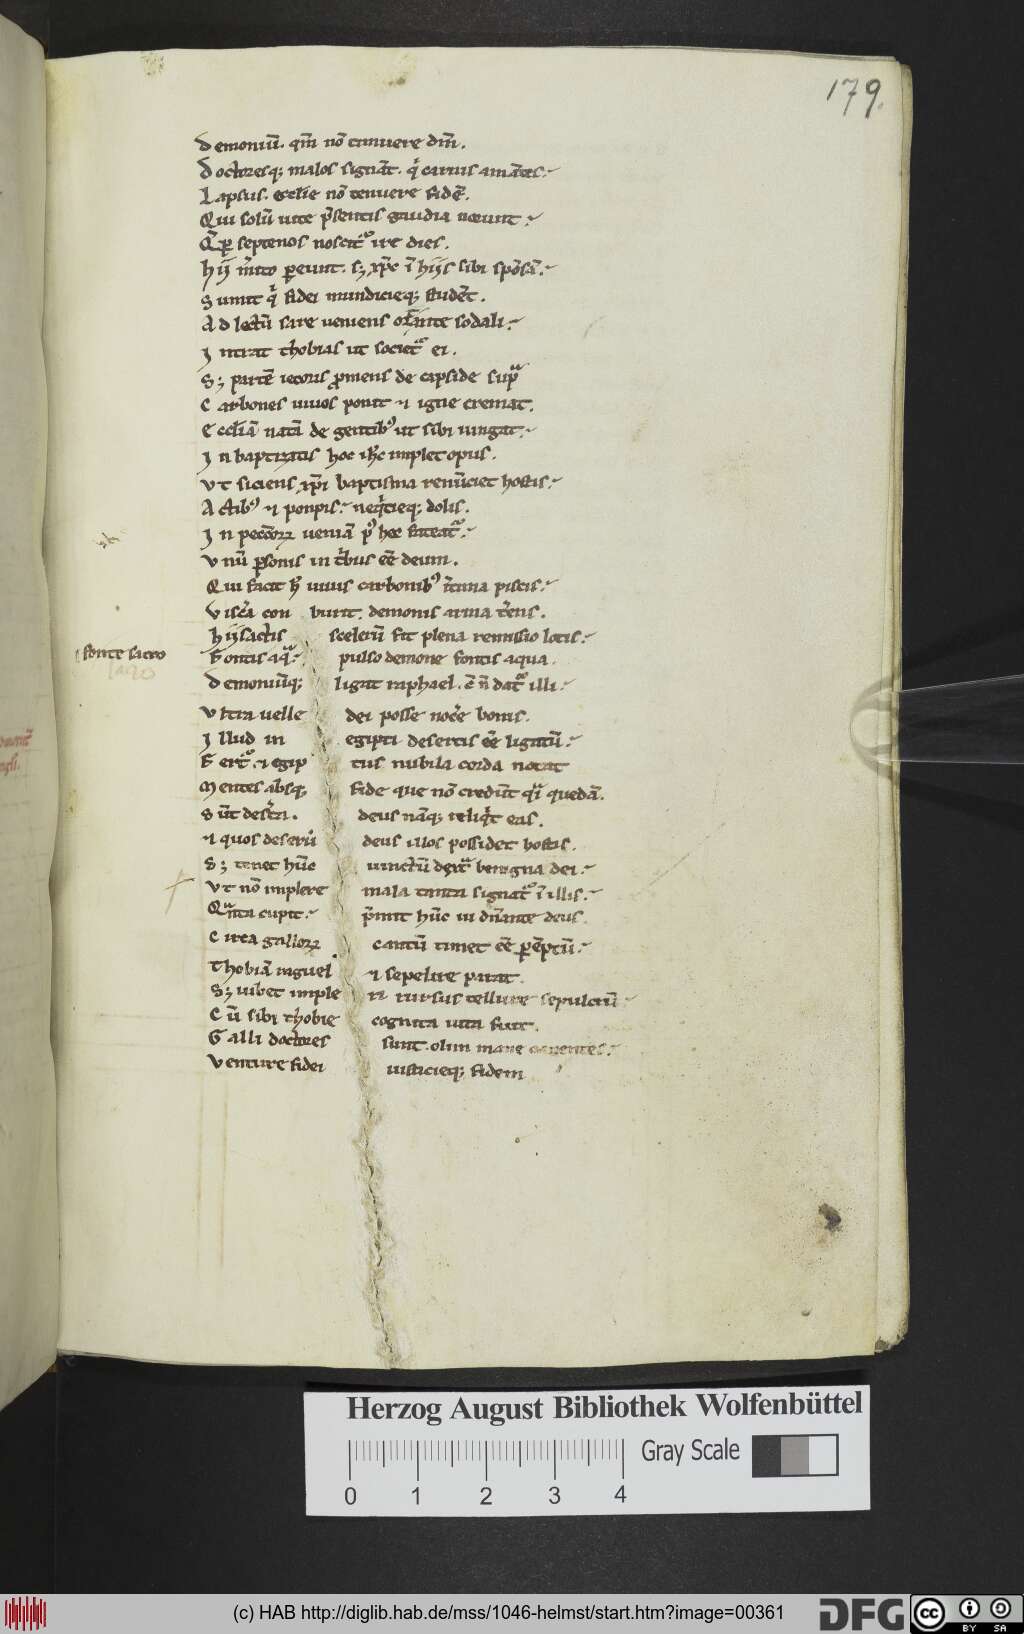 179.
Demoniū. qm̄ nō timuere dm̄.
Doctoresq; malos signāt. q̇ carnis amātes.
Lapsus. ecclīe nō tenuere fidē.
Qui solū uite p̄sentis gaudia norunt.
septenos noscitᷣ ire dies.
hij mͥto ꝑeunt. sꝫ xp̄c ī hijs sibi spōsā.
Sumit q̇ fidei mundicieq; studēt.
Ad lectū sare ueniens ortante sodali.
Intrat thobias ut societᷣ ei.
Sꝫ partē iecoris ꝓmens de capside supᷓ
Carbones uiuos ponit ⁊ igne cremat.
Eccl̄iā natā de gentibꝰ ut sibi iungat.
In baptizatis hoc ih̄c implet opus.
Vt siciens xp̄i baptisma renūciet hostis.
Actibꝰ ⁊ ponpis. neqͥtieq; dolis.
In peccōꝝ ueniā pꝰ hec fateatᷣ.
Vnū ꝑsonis in tͥbus eē deum.
Qui facit hͦ uiuis carbonibꝰ īcima piscis.
Viscͣa con burit. demonis arma tͤens.
Hijs actis scelerū fit plena remissio lotis.
fonte sacro
Fontis aqᷓ. pulso demone fontis aqua.
Demoniūq; ligat raphael. ē n̄ datᷣ illi.
Vltra uelle dei posse nocͤe bonis.
Illud in egipti desertis eē ligatū.
Fertᷣ. ⁊ egip tus nubila corda notat
Mentes absq; fide que nō credūt qͥ quedā.
Sūt descͣta. deus nāq; reliqͥt eas.
⁊ quos deserū deus illos possidet hostis.
Sꝫ tenet hūc uinctū dextᷓ benigna dei.
Vt nō implere mala tanta signatᷣ ī illis.
Qᷓnta cupit. p̄mit hūc in dn̄ante deus.
Circa galloꝝ cantū timet eē ꝑēptū.
Thobiā raguel ⁊ sepelire parat.
Sꝫ iubet imple ri rursus tellure sepulcrū
Cū sibi thobie cognita uita fuit.
Galli doctores sunt. olim mane canentes.
Venture fidei iusticieq; fidem
Herzog August Bibliothek Wolfenbüttel
Gray Scale
0 1 2 3 4
(c) HAB http://diglib.hab.de/mss/1046-helmst/start.htm?image=00361
DFG
cc
BY SA